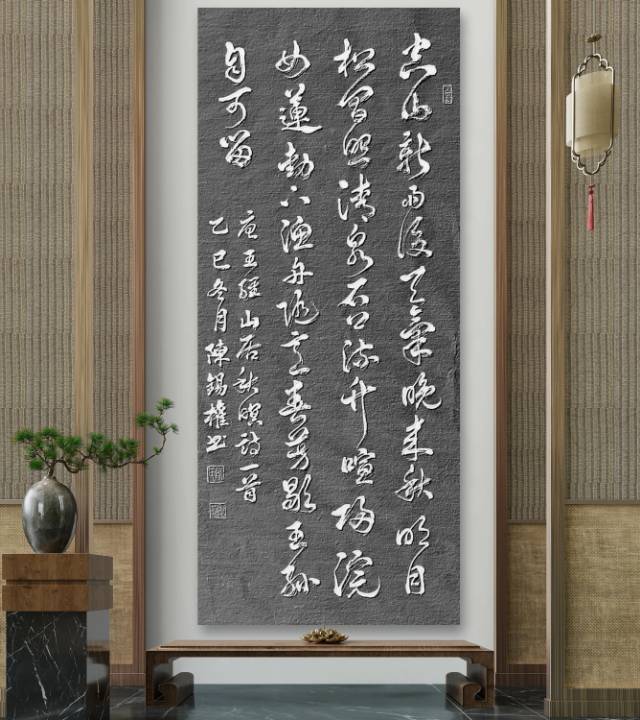 空山新雨後天氣晚來秋明月
松間照清泉石上流竹喧歸浣
女蓮動下漁舟隨意春芳歇王孫
自可留
唐王維山居秋暝詩一首
乙巳冬月陳錫權書